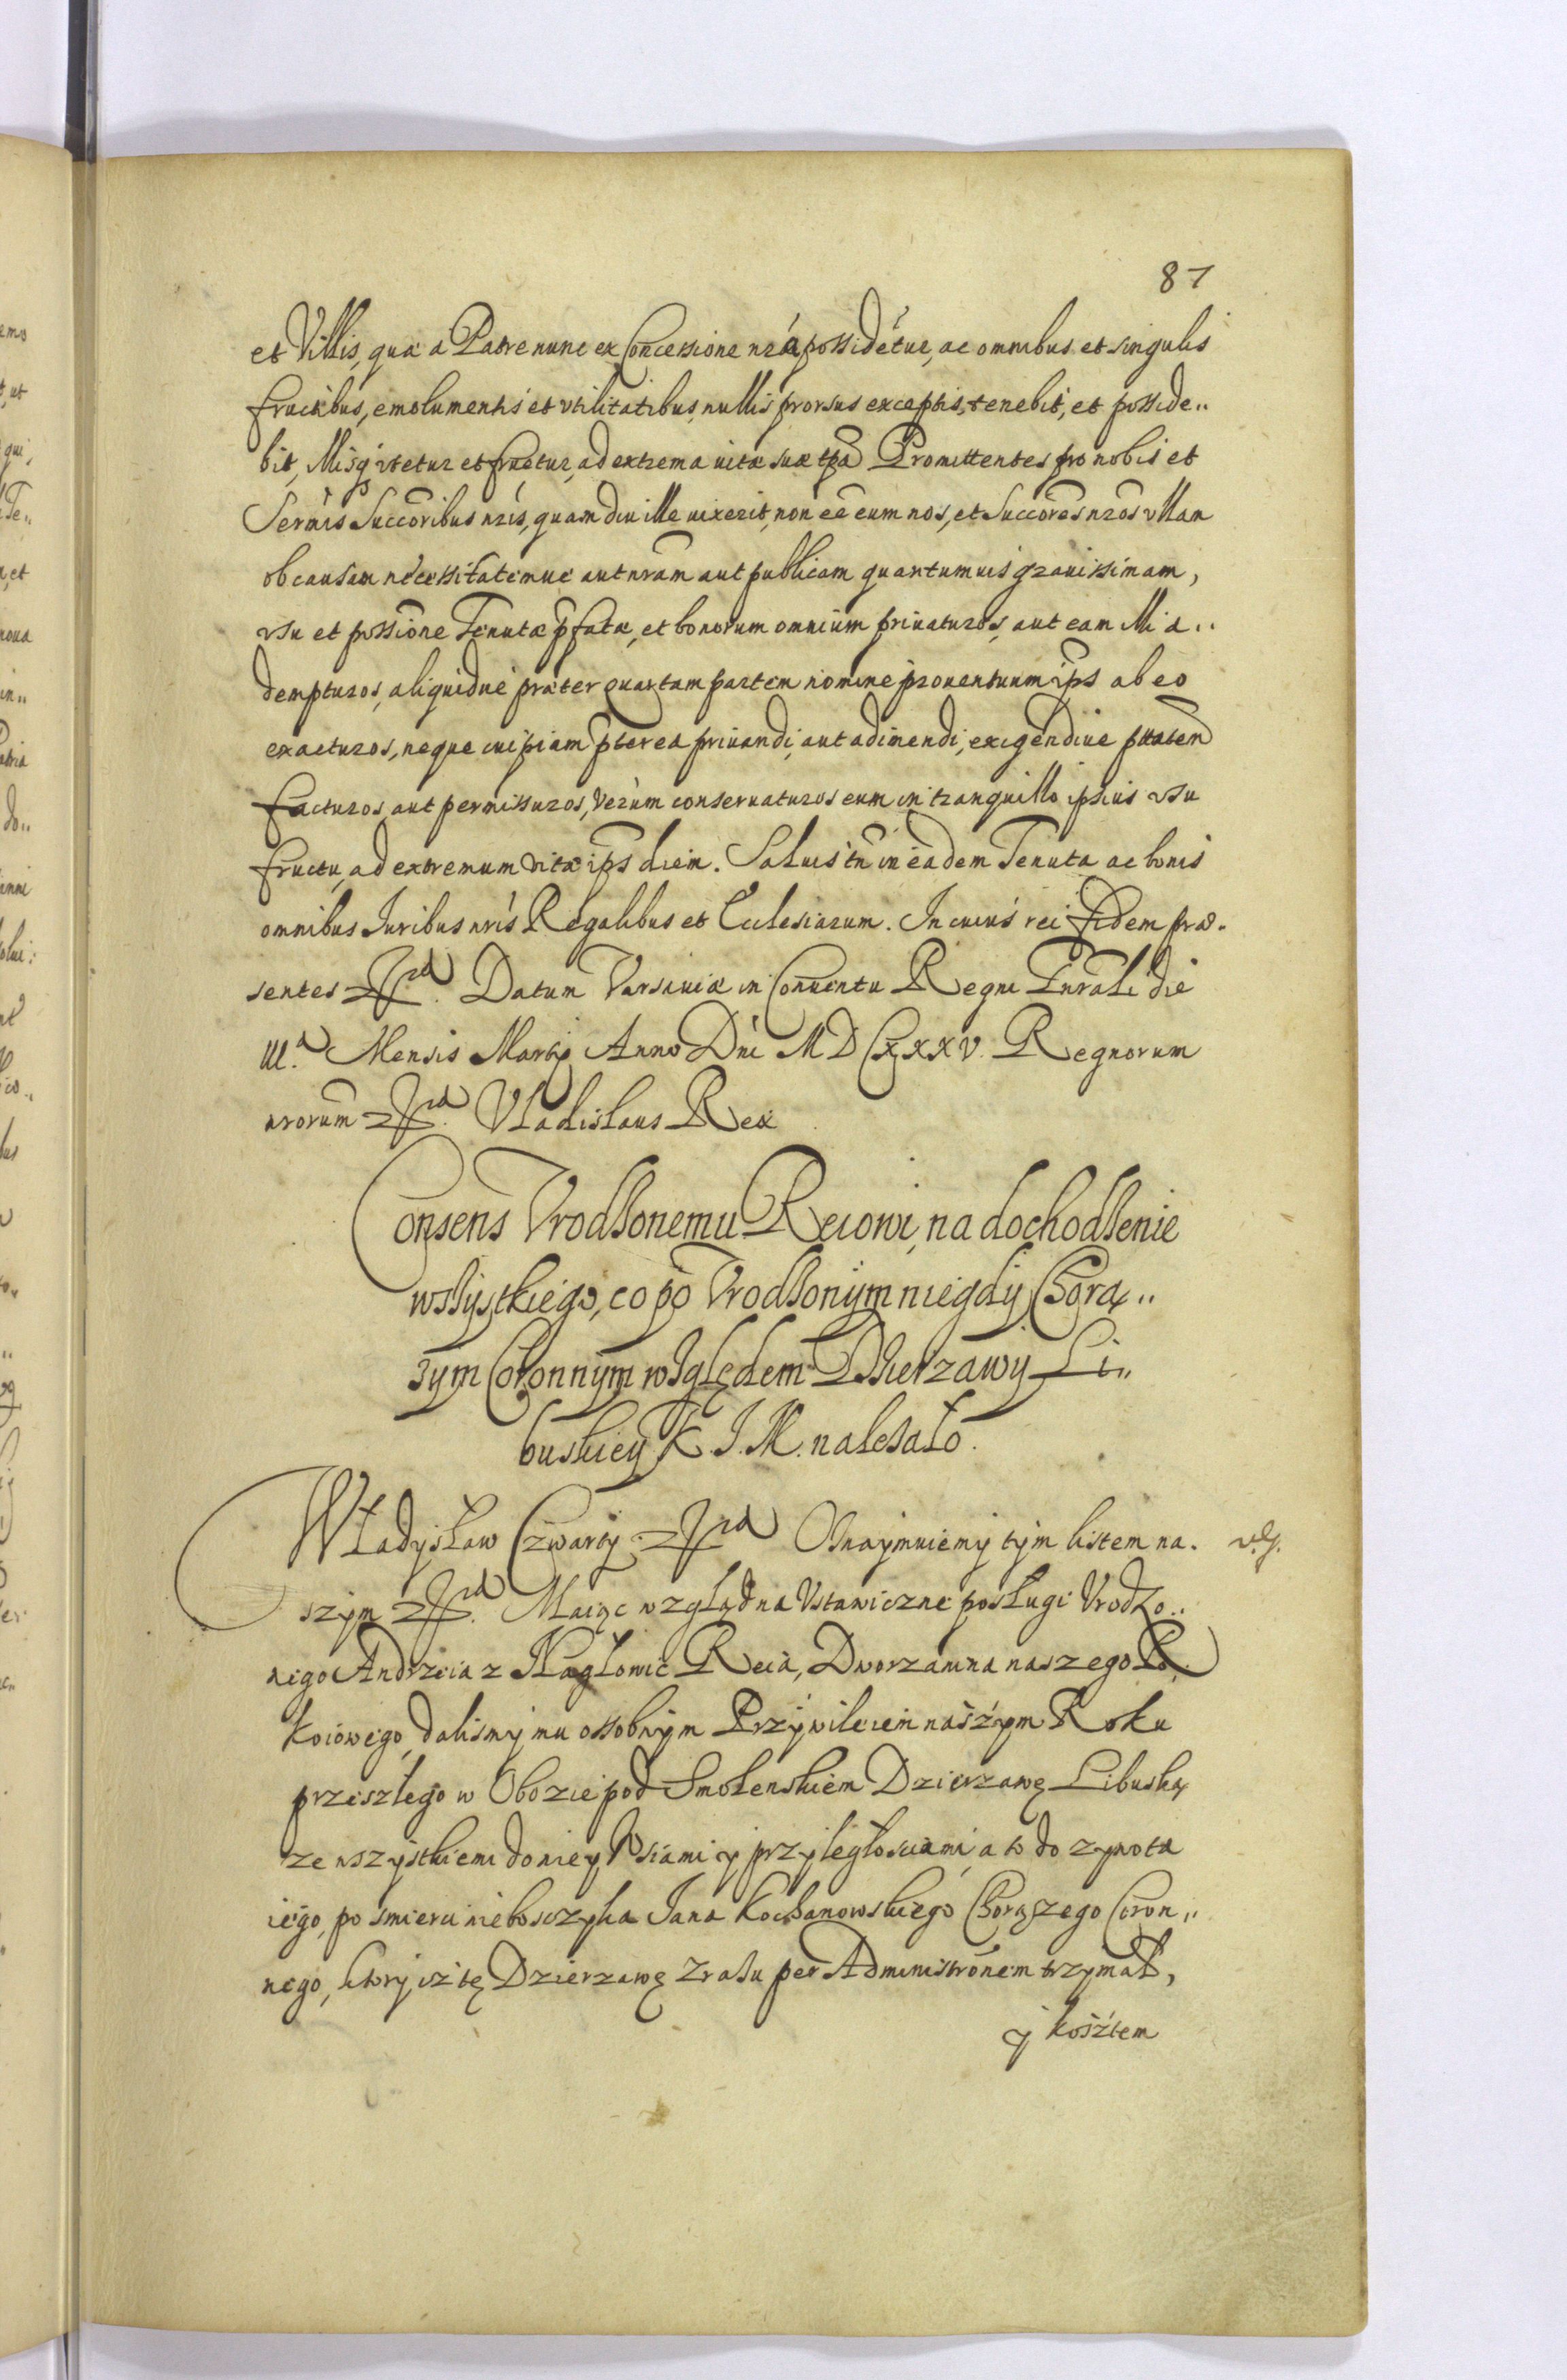 87
et Villis, quæ a Patre nunc ex Concessione nrá possidétur, ac omnibus et singulis
fructibus, emolumentis et vtilitatibus, nullis prorsus exceptis, tenebit, et posside„
bit, Illisq vtetur et fruetur, ad extrema vitæ suæ tpa Promittentes pro nobis et
Sermis Succoribus nris, quam diu ille vixerit, non ee eum nos, et Succores nros vllam
ob causam necessitatemue aut nram aut publicam quantumuis grauissimam,
vsu et possione Tenutæ pfatæ, et bonorum omnium priuaturos, aut eam Illi a„
dempturos, aliquidue præter quartam partem nomine prouentuum ips ab eo
exacturos, neque cuipiam pterea priuandi, aut adimendi, exigendiue ptatem
facturos, aut permissuros, Verum conseruaturos eum in tranquillo ipsius vsu
fructu, ad extremum vitæ ips diem. Saluis tn in eadem Tenuta ac bonis
omnibus Iuribus nris Regalibus et Ecclesiarum. In cuius rei fidem præ.
sentes Datum Varsauiæ in Conuentu Regni Gnrali die
III.a Mensis Martij Anno Dni MDCXXXV. Regnorum
nrorum Vladislaus Rex
Consens Vrodzonemu Reiowi, na dochodzenie
wszystkiego, co po Vrodzonym niegdy Chorą„
zym Coronnym względem Dzierzawy Li„
buskiey K. J. M. nalezało.
Władysław Czwarty Oznaymuiemy tym listem na.
szym Maiąc wzgląd na Vstawiczne posługi Vrodzo„
nego Andrzeia z Nagłowic Reia, Dworzanina naszego Po
koiowego, dalismy mu ossobnym Przywileiem naszym Roku
przeszłego w Obozie pod Smolenskiem Dzierzawę Libuską
ze wszystkiemi do niey Wsiami y przyległosciami, a to do zywota
iego, po smierci nieboszczyka Jana Kochanowskiego Chorązego Coron„
nego, ktory iz tę Dzierzawę zrazu per Administronem trzymał,
y kosztem